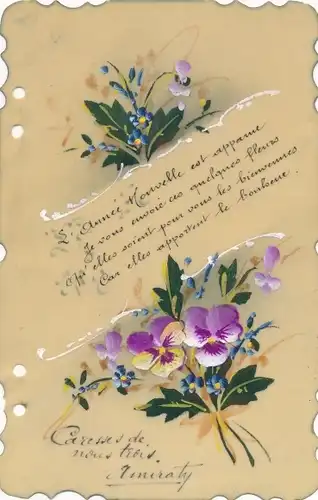 L'Année Nouvelle est apparue
Je vous envoie ces quelques fleurs
Qu'elles soient pour vous les bienvenues
Car elles apportent le bonheur.
Caresses de
nous trois.